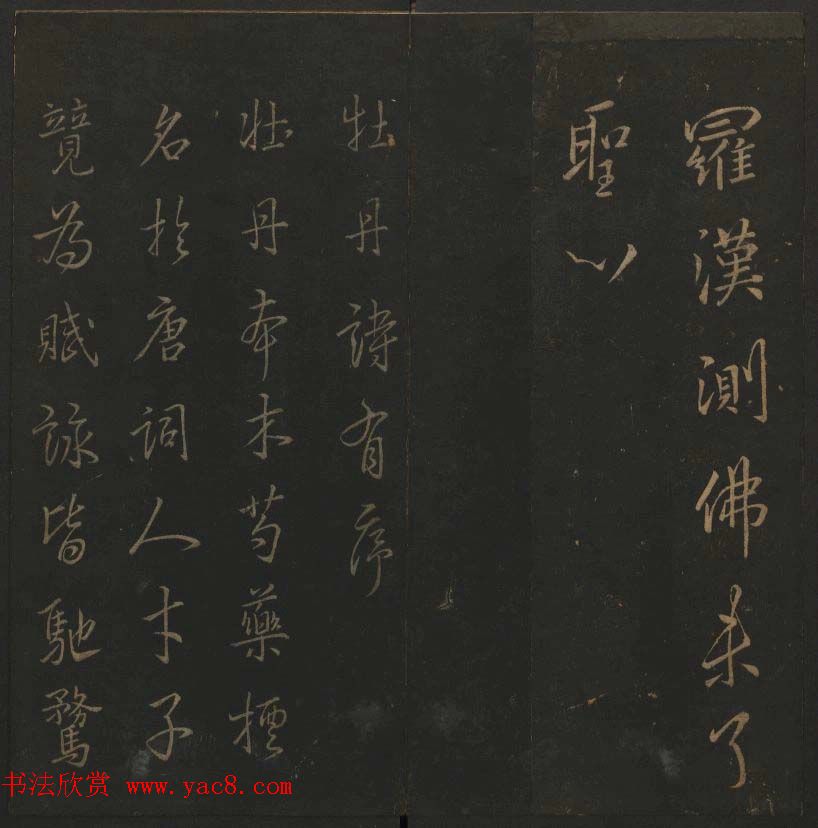 羅漢測佛未了
聖心
牡丹詩有序
牡丹本木芍藥標
名於唐詞人才子
競為賦詠皆馳騖
书法欣赏 www.yac8.com